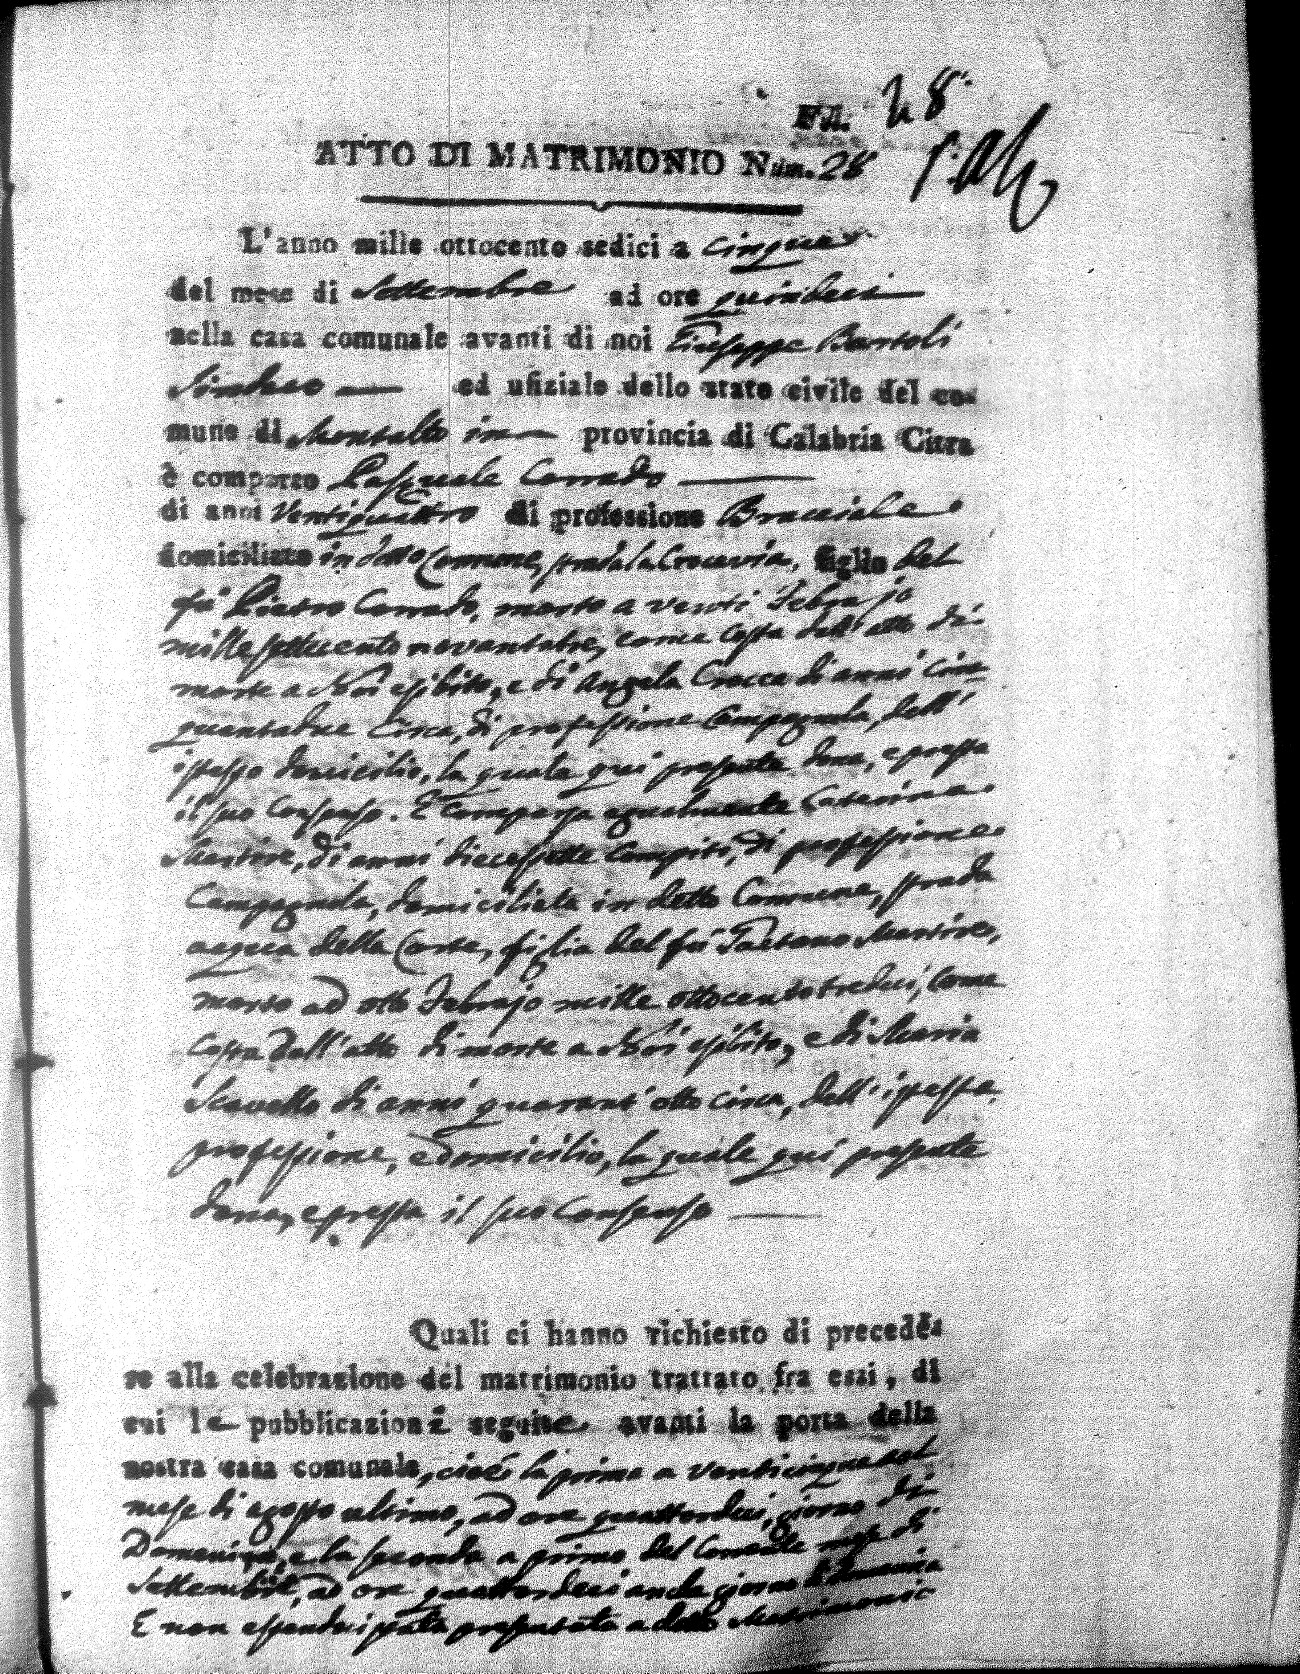 Fol. 28
ATTO DI MATRIMONIO Num. 28
L'anno mille ottocento sedici a cinque
del mese di Settembre ad ore quindeci
nella casa comunale avanti di noi Giuseppe Bartoli
Sindaco ed ufiziale dello stato civile del co-
mune di Montalto in provincia di Calabria Citra
è comparso Pasquale Corrado
di anni Ventiquattro di professione Bracciale
domiciliato in detto Comune, strada la Crocevia, figlio del
fù Pietro Corrado, morto a venti Febrajo
millesettecento novantatre, come costa dall'atto di
morte a Noi esibito, e di Angela Crocca di anni cin-
quantadue circa, di professione Campagnola, dell'
istesso domicilio, la quale qui presente dona, e presta
il suo Consenso. È comparsa egualmente Caterina
Martire, di anni diecesette compiti, di professione
Campagnola, domiciliata in detto Comune, strada
acqua della Corte, figlia del fù Gaetano Martire,
morto ad otto Febrajo mille ottocento tredeci, come
Costa dall'atto di morte a Noi esibito, e di Maria
Scavello di anni quarant'otto circa, dell'istessa
professione, e domicilio, la quale qui presente
dona, e presta il suo Consenso
Quali ci hanno richiesto di precede-
re alla celebrazione del matrimonio trattato fra essi, di
cui le pubblicazioni seguite avanti la porta della
nostra casa comunale, cioè la prima a venticinque del
mese di agosto ultimo, ad ore quattordeci, giorno di
Domenica, e la seconda a primo del Corrente mese di
Settembre, ad ore quattordeci anche giorno di Domenica
E non essendoci stata presentata a detto Matrimonio